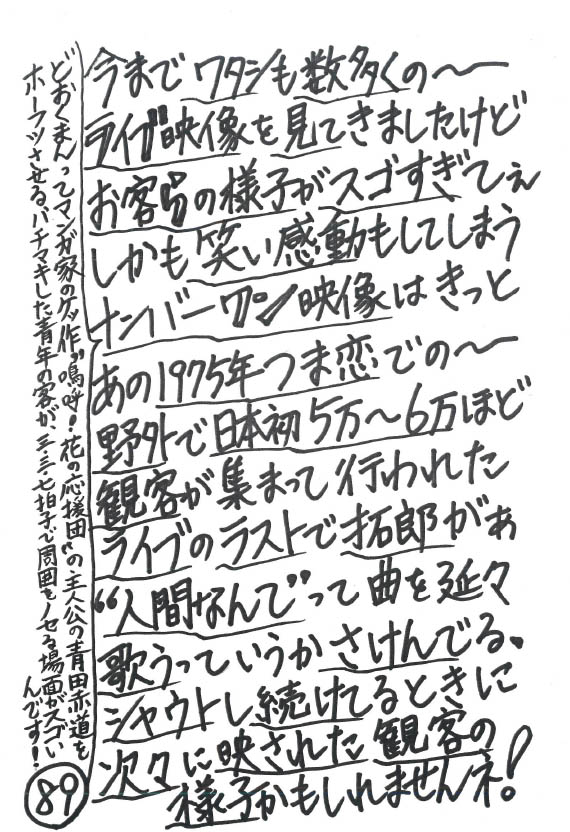 今までワタシも数多くの〜
ライブ映像を見てきましたけど
お客らの様子がスゴすぎてぇ
しかも笑い感動もしてしまう
ナンバーワン映像はきっと
あの1975年つま恋での〜
野外で日本初5万〜6万ほど
観客が集まって行われた
ライブのラストで拓郎がぁ
“人間なんて”って曲を延々
歌うっていうかさけんでる、
シャウトし続けてるときに
次々に映された観客の
様子かもしれませんネ!
どおくまんってマンガ家のケッ作“嗚呼!花の応援団”の主人公の青田赤道を
ホーフツさせるハチマキした青年の客が、三・三・七拍子で周囲をノセる場面がスゴい
んです!
89